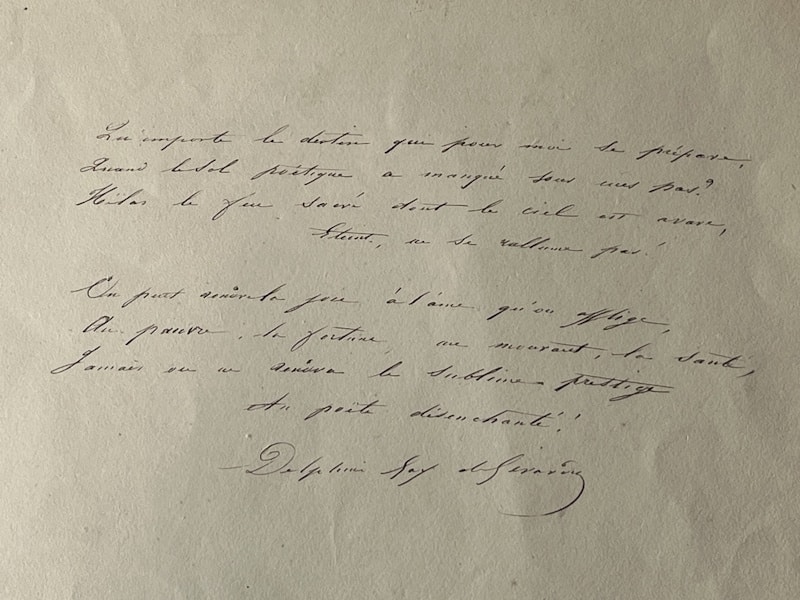 Qu'importe le destin que pour moi se prépare,
Quand le sol poëtique a manqué sous mes pas?
Hélas le feu sacré dont le ciel est avare,
Eteint, ne se rallume pas!
On peut rendre la joie à l'âme qu'on afflige,
Au pauvre, la fortune, au mourant, la santé,
Jamais on ne rendra le sublime prestige
Au poëte désenchanté!
Delphine Gay de Girardin